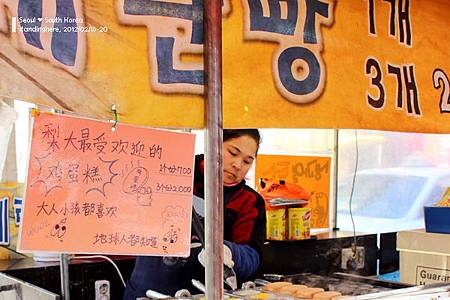 Seoul ♥ South Korea
standinshere, 2012/02/16-20
빵
1개
3개 2
梨大最受歡迎的
雞蛋糕
1份700
3份2000
大人小孩都喜歡
地球人都知道
Guaran